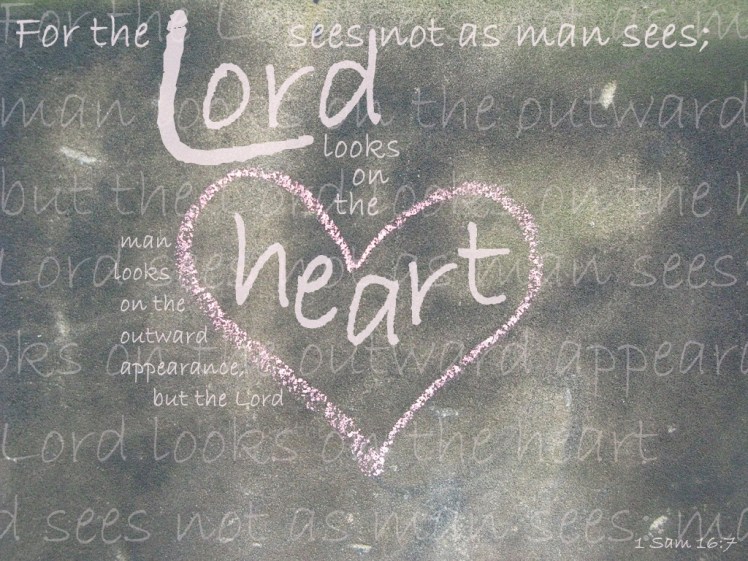 For the Lord sees not as man sees;
man looks on the outward
but the Lord looks on the
looks
on
the
heart
man
looks
on the
outward
appearance,
but the Lord
Lord sees not as man sees
ooks on the outward appeara
Lord looks on the heart
d sees not as man sees; ma
1 Sam 16:7